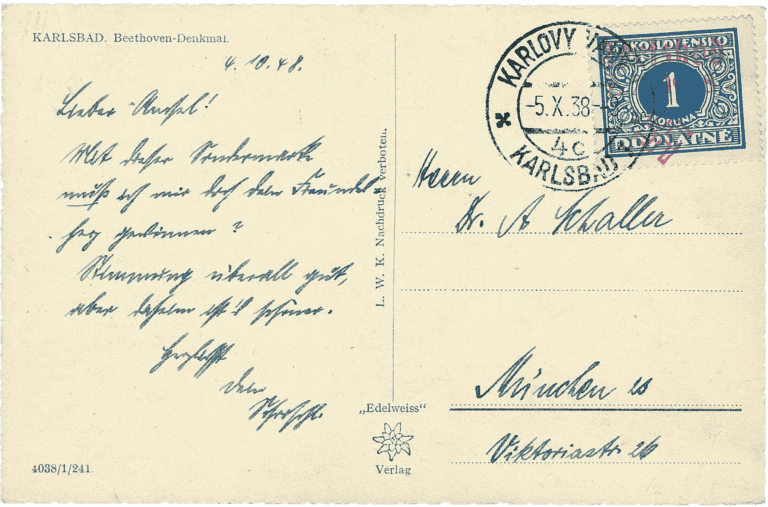 KARLSBAD. Beethoven-Denkmal.
4. 10. 48.
Lieber Anschel!
Mit dieser Sondermarke
muß ich mir doch dein Freundes-
herz gewinnen?
Stimmung überall gut,
aber daheim ist's schöner.
Herzlichst
dein
L. W. K. Nachdruck verboten.
„Edelweiss“
Verlag
4038/1/241.
KARLOVY VARY
-5.X.38-
4c
KARLSBAD
ČESKOSLOVENSKO
1
KORUNA
DOPLATNÉ
Herrn
Dr. A Schaller
München 23
Viktoriastr 26